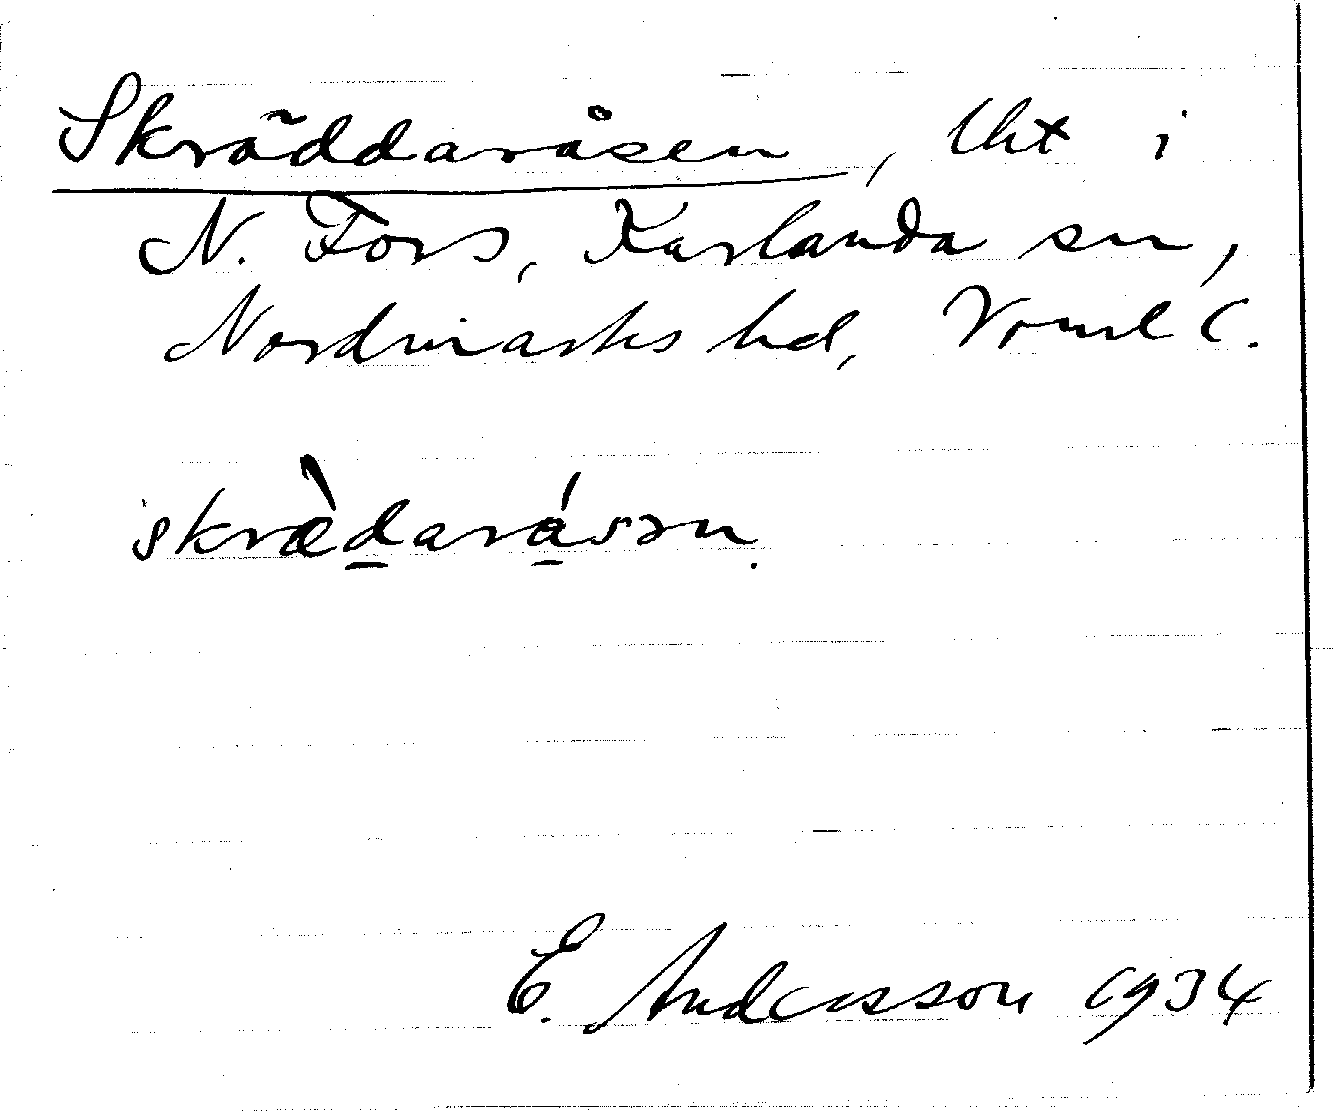 Skräddaråsen, lht i
N. Fors, Karlanda sn,
Nordmarks hd, Vrml l.
skræ̀daråsən.
E. Andersson 1934